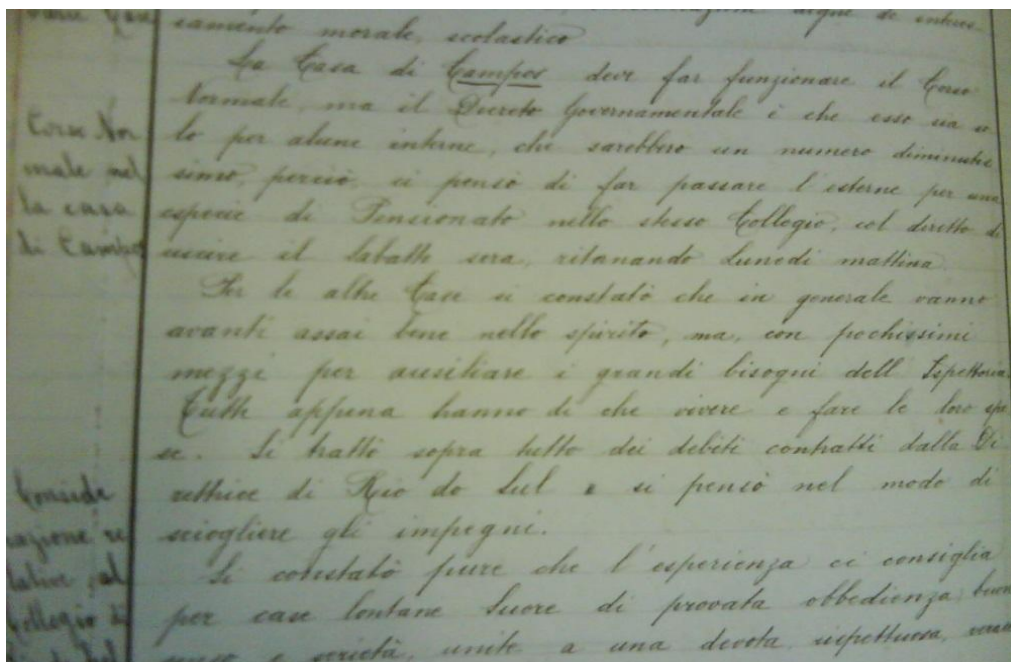 samento morale, scolastico
La Casa di Campos deve far funzionare il Corso
Normale, ma il Decreto Governamentale è che esso sia so
lo per alune interne, che sarebbero un numero diminutis
simo, perciò, si pensò di far passare l'esterne per una
especie di Pensionato nello stesso Collegio, col diritto di
uscire il Sabatto sera, ritonando Lunedi mattina.
Per le altre Case si constatò che in generale vanno
avanti assai bene nello spirito, ma, con pochissimi
mezzi per ausiliare i grandi bisogni dell' Ispettoria.
Tutte appena hanno di che vivere e fare le loro spe
se. Si trattò sopra tutto dei debiti contratti dalla Di
rettrice di Rio do Sul e si pensò nel modo di
sciogliere gli impegni.
Si constatò pure che l'esperienza ci consiglia
per case lontane Suore di provata obbedienza, buon
senso e serietà, unite a una devota, rispettuosa,
Corso Nor
male nel
la casa
di Campos
Conside
razione re
lative al
Collegio di